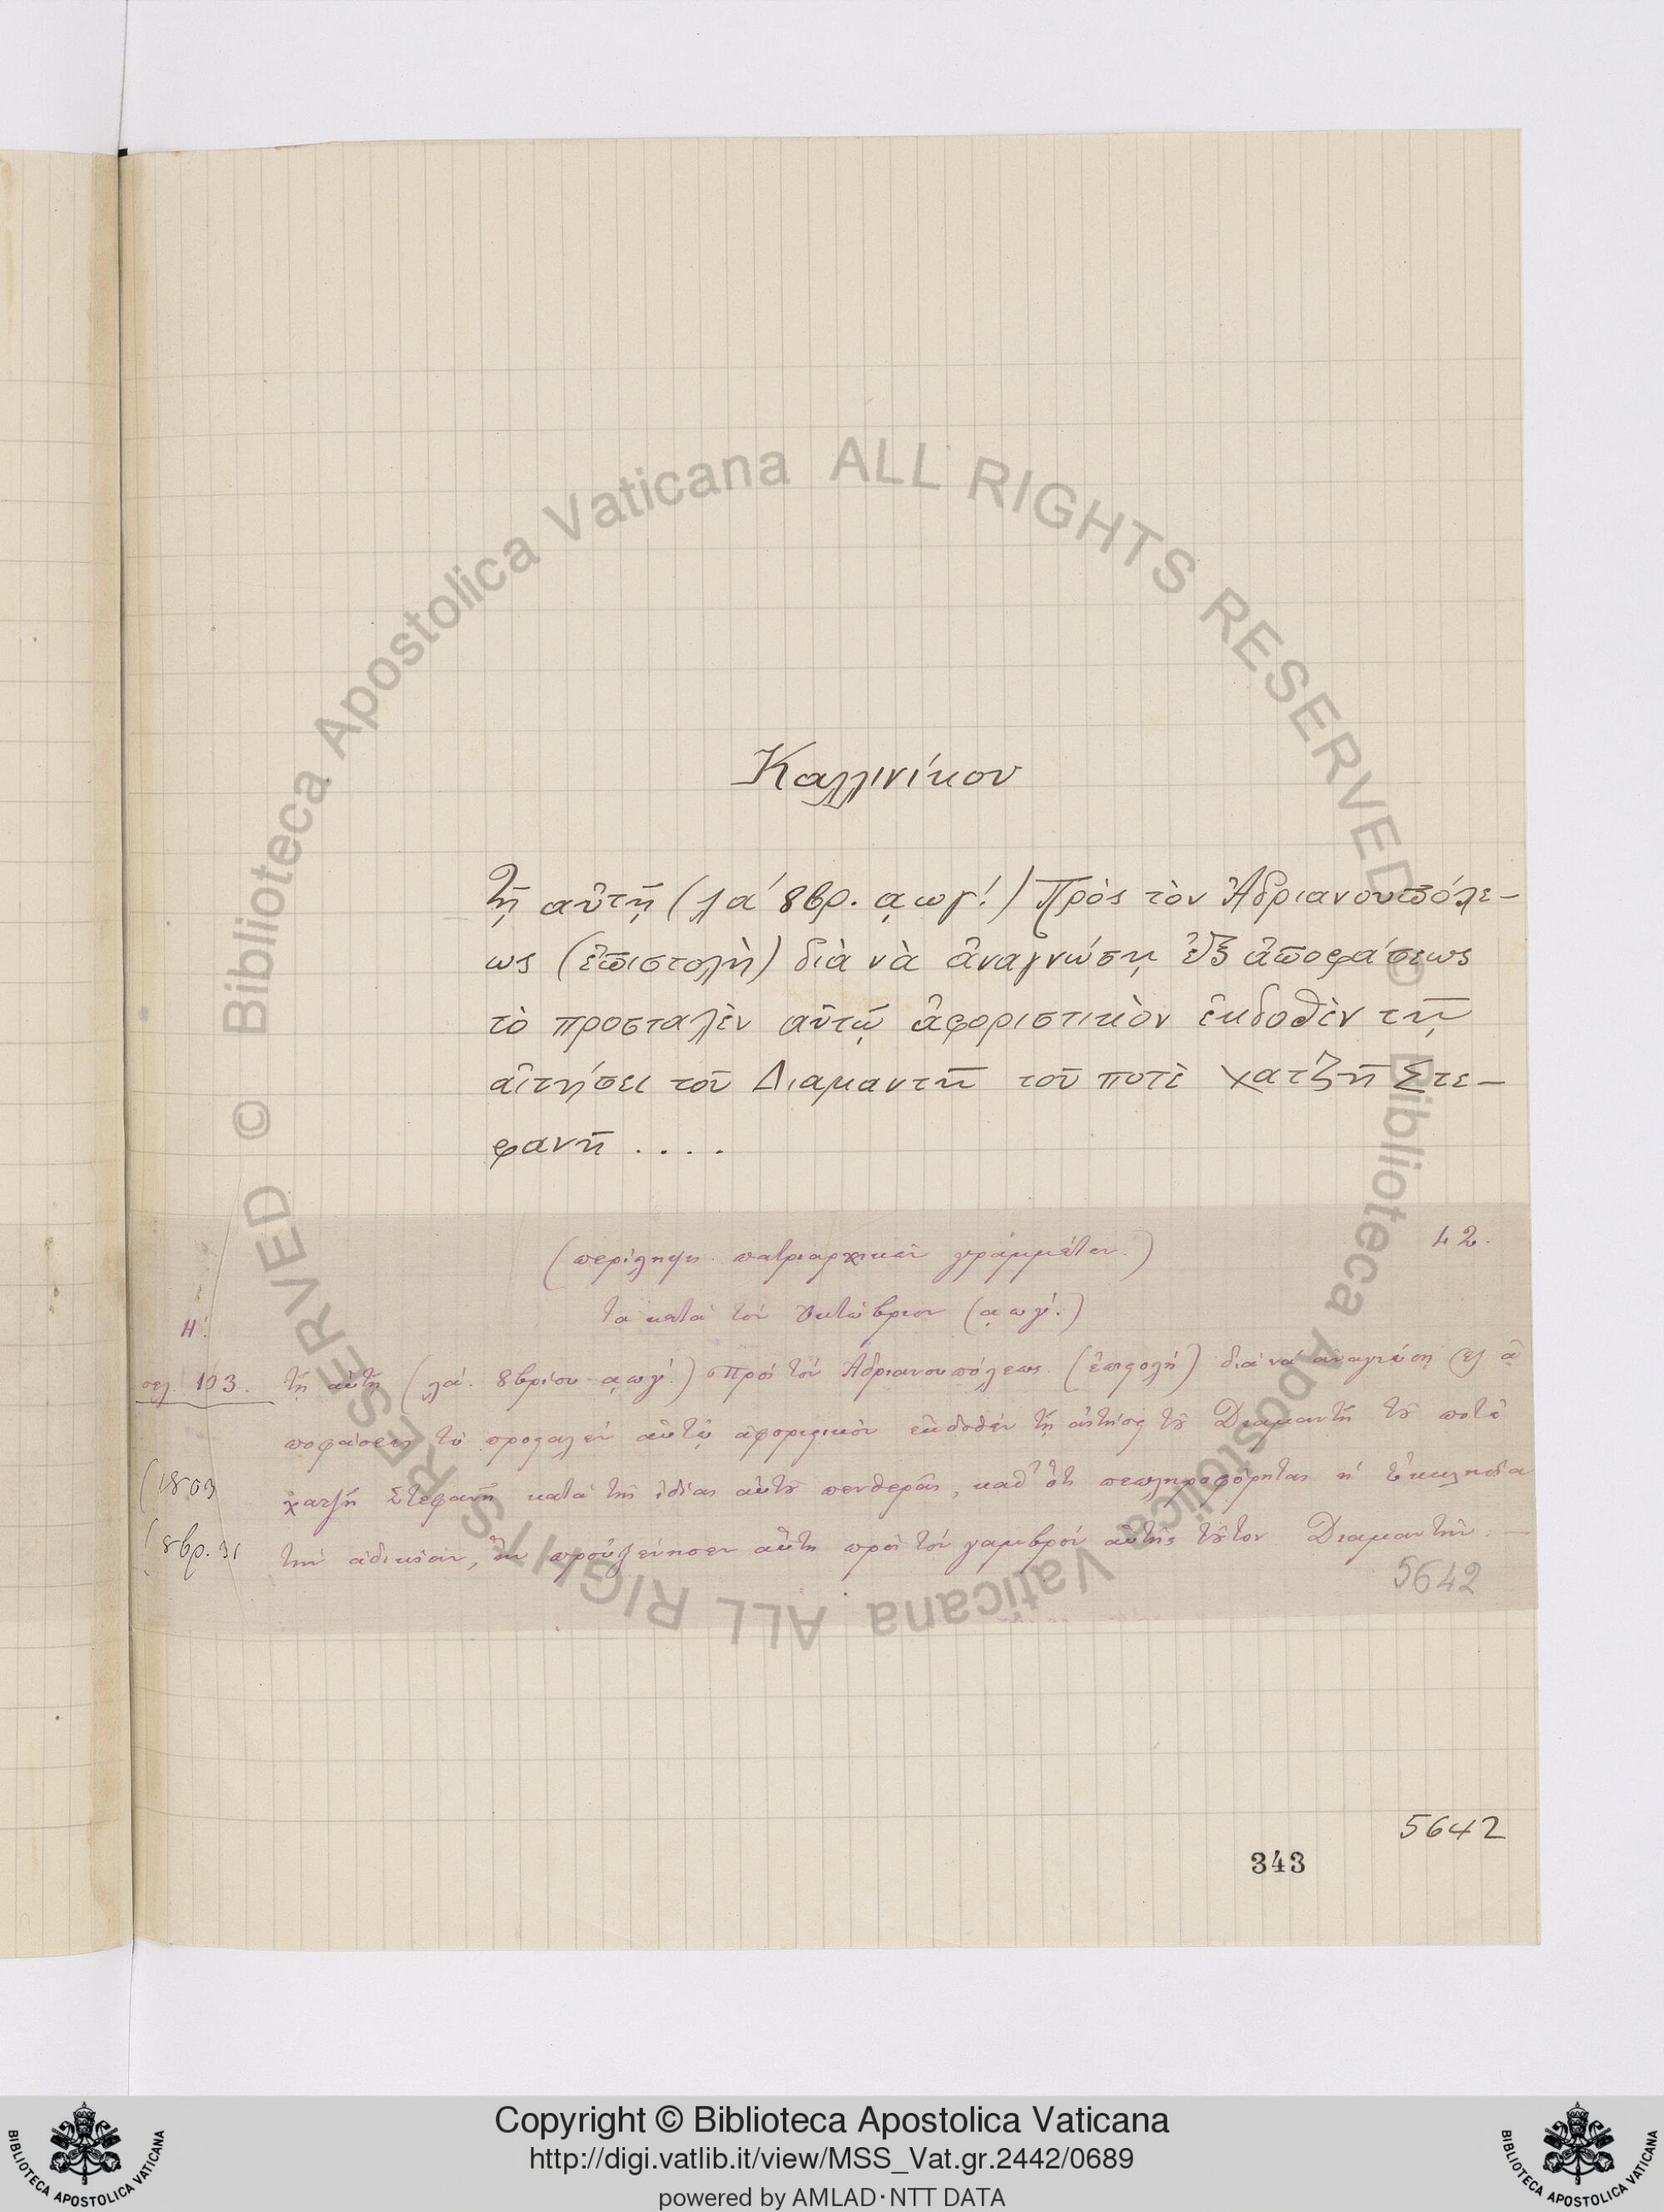 Καλλινίκου
Τῇ αὐτῇ (λα΄ 8βρ. ͵αωγ΄.) Πρὸς τὸν Ἀδριανουπόλε-
ως (ἐπιστολὴ) διὰ νὰ ἀναγνώσῃ ἐξ ἀποφάσεως
τὸ προσταλὲν αὐτῷ ἀφοριστικὸν ἐκδοθὲν τῇ
αἰτήσει τοῦ Διαμαντῆ τοῦ ποτὲ χατζῆ Στε-
φανῆ . . . .
(περίληψις πατριαρχικῶν γραμμάτων.)
42.
τα κατὰ τὸν Ὀκτώβριον (͵αωγ΄.)
Η΄.
σελ. 103. τῇ αὐτῇ (λα΄. 8βρίου ͵αωγ΄.) Πρὸς τὸν Ἀδριανουπόλεως (ἐπιστολὴ) διὰ νὰ ἀναγνώσῃ ἐξ ἀ
ποφάσεως τὸ προσταλὲν αὐτῷ ἀφοριστικὸν ἐκδοθὲν τῇ αἰτήσει τοῦ Διαμαντῆ τοῦ ποτὲ
(1803 χατζῆ Στεφανῆ κατὰ τῆς ἰδίας αὐτοῦ πενθερᾶς, καθ' ὅτι πεπληροφόρηται ἡ Ἐκκλησία
(8βρ. 31 τὴν ἀδικίαν, ἣν προὐξένησεν αὕτη πρὸς τὸν γαμβρὸν αὐτῆς τοῦτον Διαμαντῆν. —
5642
5642
343
© Biblioteca Apostolica Vaticana ALL RIGHTS RESERVED
© Biblioteca Apostolica Vaticana ALL RIGHTS RESERVED
Copyright © Biblioteca Apostolica Vaticana
http://digi.vatlib.it/view/MSS_Vat.gr.2442/0689
powered by AMLAD·NTT DATA
BIBLIOTECA APOSTOLICA VATICANA
BIBLIOTECA APOSTOLICA VATICANA